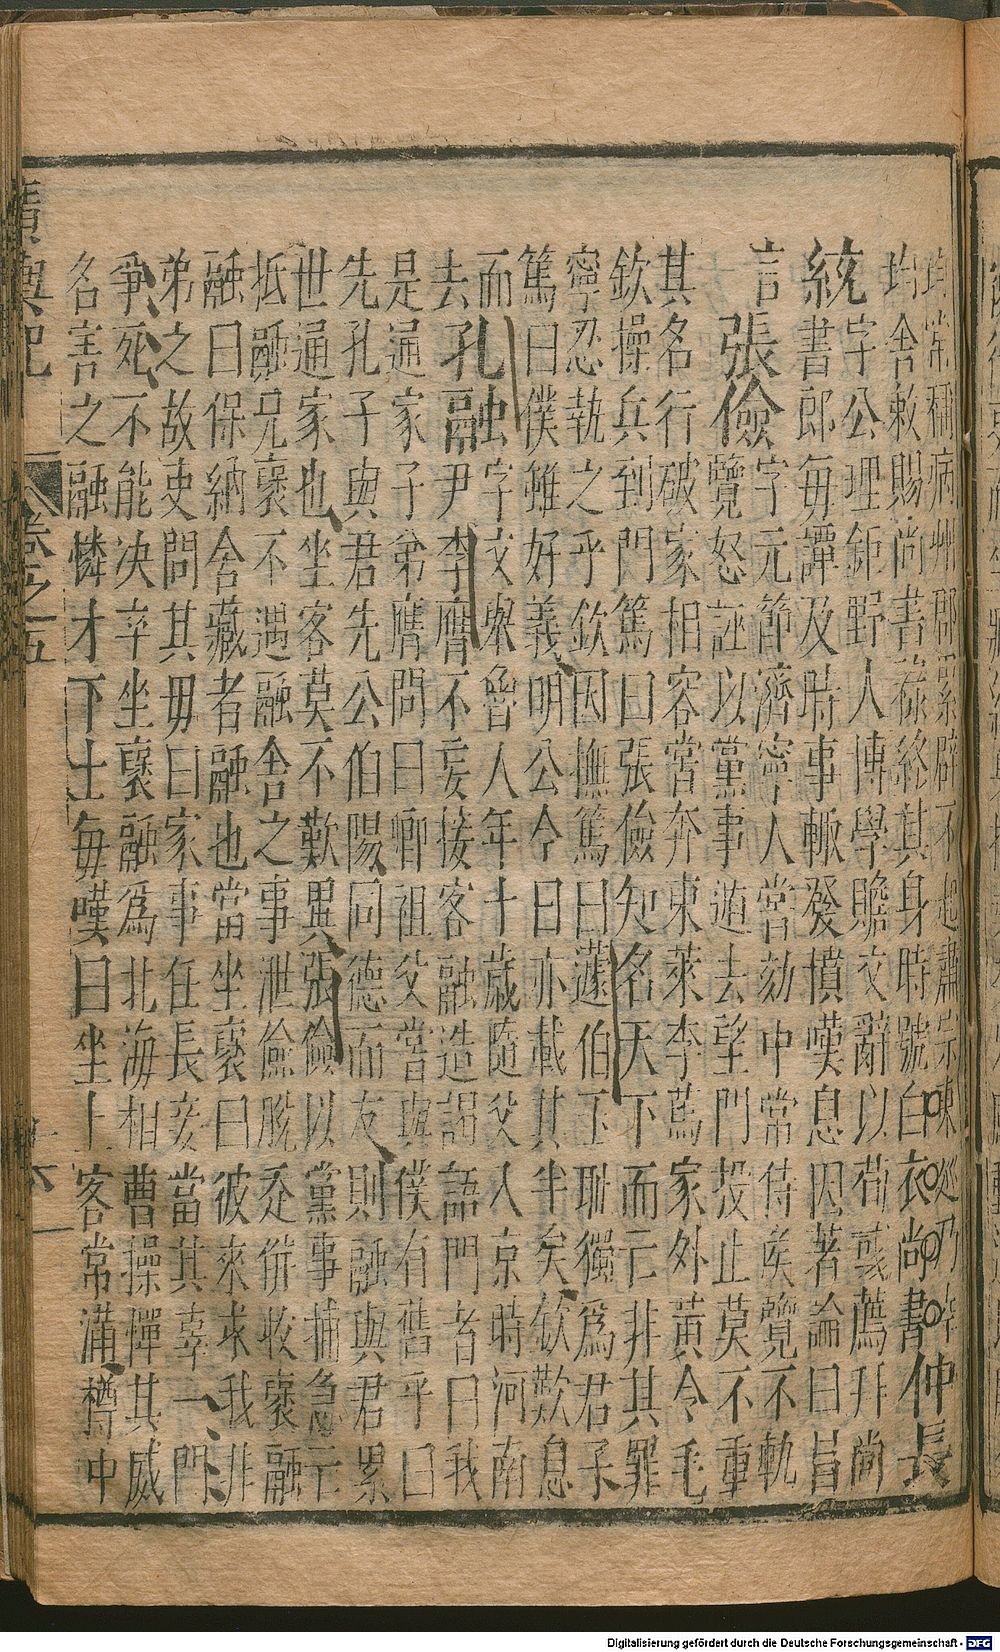 均常稱病州郡累辟不起肅宗東巡乃幸
均舍敕賜尚書祿終其身時號白衣尚書仲長
統字公理鉅野人博學贍文辭以荀彧薦拜尚
書郎每譚及時事輒發憤嘆息因著論曰昌
言張儉字元節濟寧人嘗劾中常侍矦覽不軌
覽怒誣以黨事遁去望門投止莫不重
其名行破家相容嘗奔東萊李篤家外黃令毛
欽操兵到門篤曰張儉知名天下而亡非其罪
寧忍執之乎欽因撫篤曰蘧伯玉恥獨為君子
篤曰僕雖好義明公今日亦載其半矣欽歎息
而去孔融字文舉魯人年十歲隨父入京時河南
尹李膺不妄接客融造謁語門者曰我
是通家子弟膺問曰卿祖父嘗與僕有舊乎曰
先孔子與君先公伯陽同德而友則融與君累
世通家也坐客莫不歎異張儉以黨事捕急亡
抵融兄褒不遇融舍之事泄儉脫走併收褒融
融曰保納舍藏者融也當坐褒曰彼來求我非
弟之故吏問其毋曰家事任長妾當其辜一門
爭死不能決卒坐褒融為北海相曹操憚其威
名害之融憐才下士每嘆曰坐上客常滿樽中
廣輿記 卷之五 十六
Digitalisierung gefördert durch die Deutsche Forschungsgemeinschaft - DFG